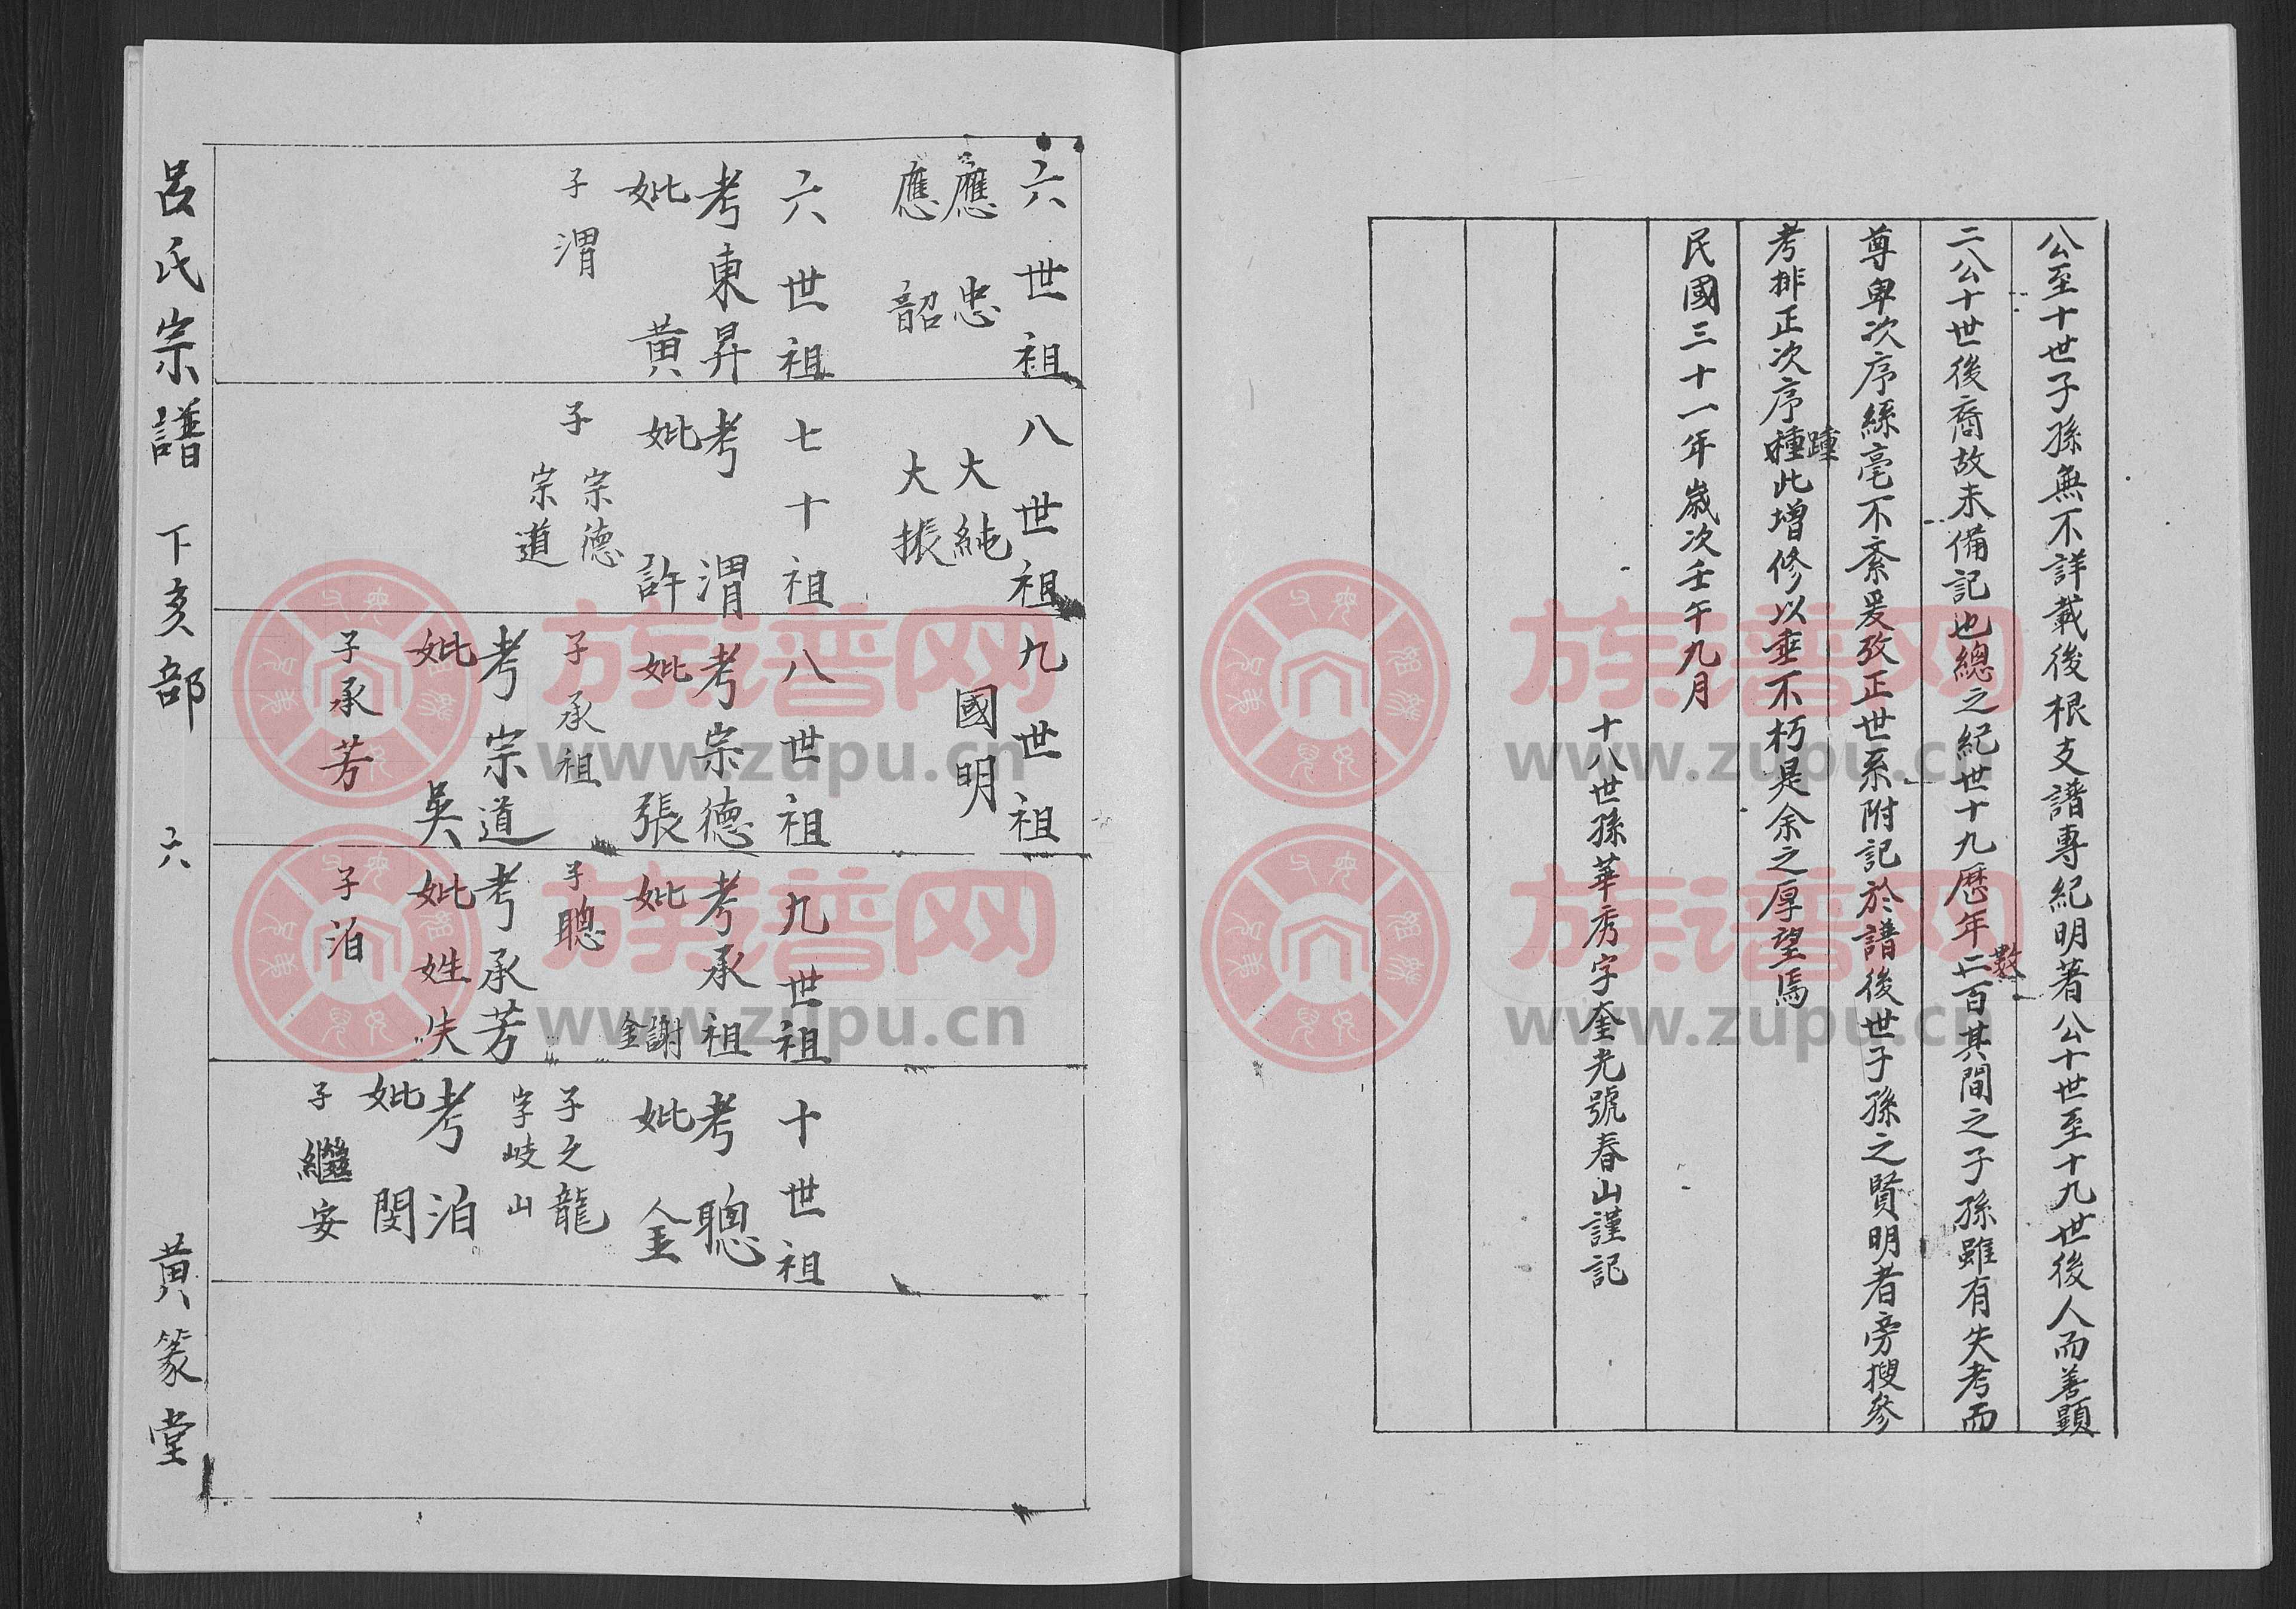 公至十世子孫無不詳載後根支譜專紀明著公十世至十九世後人而善顯
二公十世後裔故未備記也總之紀世十九歷年二百其間之子孫雖有失考而
數
尊卑次序絲毫不紊爰攷正世系附記於譜後世子孫之賢明者旁搜參
考排正次序種此增修以垂不朽是余之厚望焉
踵
民國三十一年歲次壬午九月
十八世孫華秀字奎光號春山謹記
六世祖
應忠
應韶
六世祖
考東昇
妣黃
子渭
八世祖
大純
大振
七十祖
考渭
妣許
子宗德
宗道
九世祖
國明
八世祖
考宗德
妣張
子承祖
考宗道
妣吳
子承芳
九世祖
考承祖
妣謝
金
子聰
考承芳
妣姓失
子泊
十世祖
考聰
妣金
子之龍
字岐山
考泊
妣閔
子繼安
呂氏宗譜 下亥部 六 黃篆堂
族谱网
www.zupu.cn
族谱网
www.zupu.cn
族谱网
www.zupu.cn
族谱网
www.zupu.cn